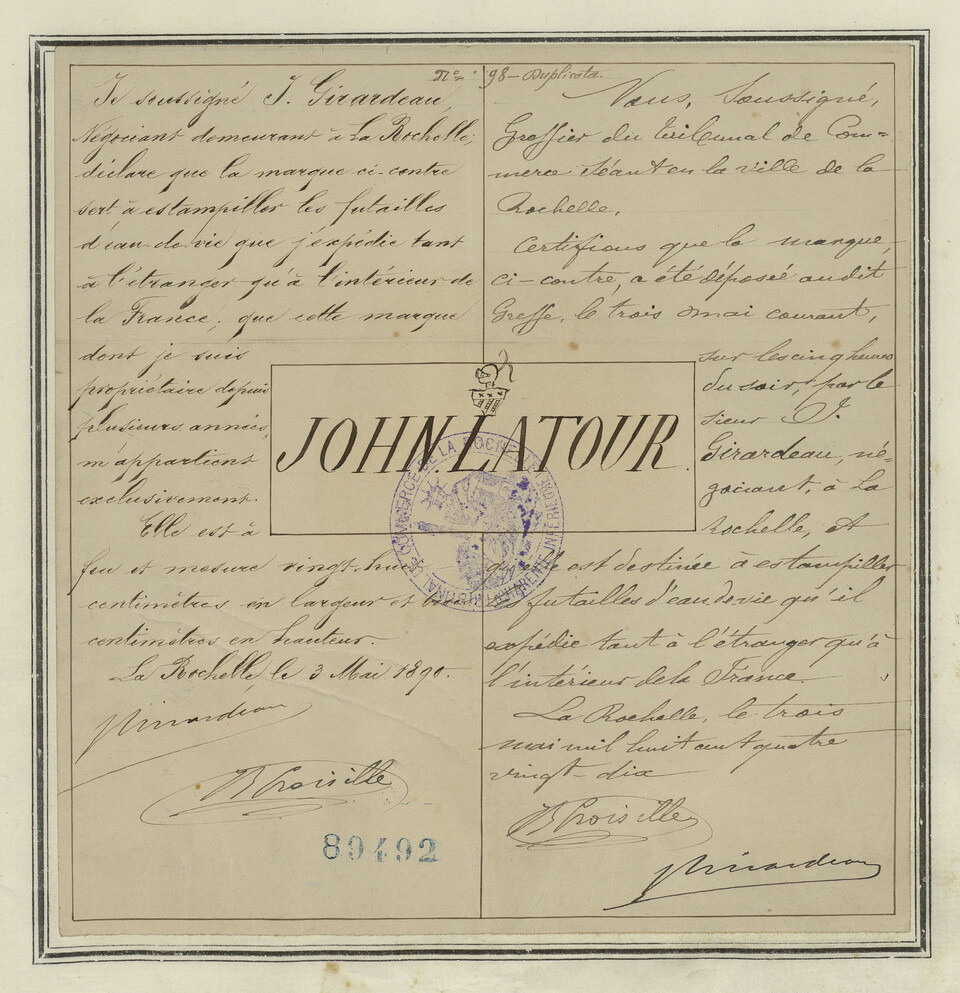 N° 98 - Duplicata.
Je soussigné J. Girardeau,
Négociant demeurant à La Rochelle,
déclare que la marque ci-contre
sert à estampiller les futailles
d'eau-de-vie que j'expédie tant
à l'étranger qu'à l'intérieur de
la France; que cette marque
dont je suis
propriétaire depuis
plusieurs années,
m'appartient
exclusivement.
Elle est à
feu et mesure vingt-hu
centimètres en largeur et
centimètres en hauteur.
La Rochelle le 3 Mai 1890.
J Girardeau
B Croisille
80492
JOHN. LATOUR.
TRIBUNAL DE COMMERCE DE LA ROCHELLE
CHARENTE INFERIEURE
Nous, Soussigné,
Greffier du Tribunal de Com-
merce séant en la ville de la
Rochelle,
Certifions que la marque
ci-contre, a été déposé audit
Greffe, le trois mai courant,
sur les cinq heures
du soir, par le
sieur J.
Girardeau, né-
gociant, à La
Rochelle, et
qu'elle est destinée à estampiller
les futailles d'eau de vie qu'il
expédie tant à l'étranger qu'à
l'intérieur de la France.
La Rochelle, le trois
mai mil huit cent quatre
vingt-dix
B Croisille
J Girardeau